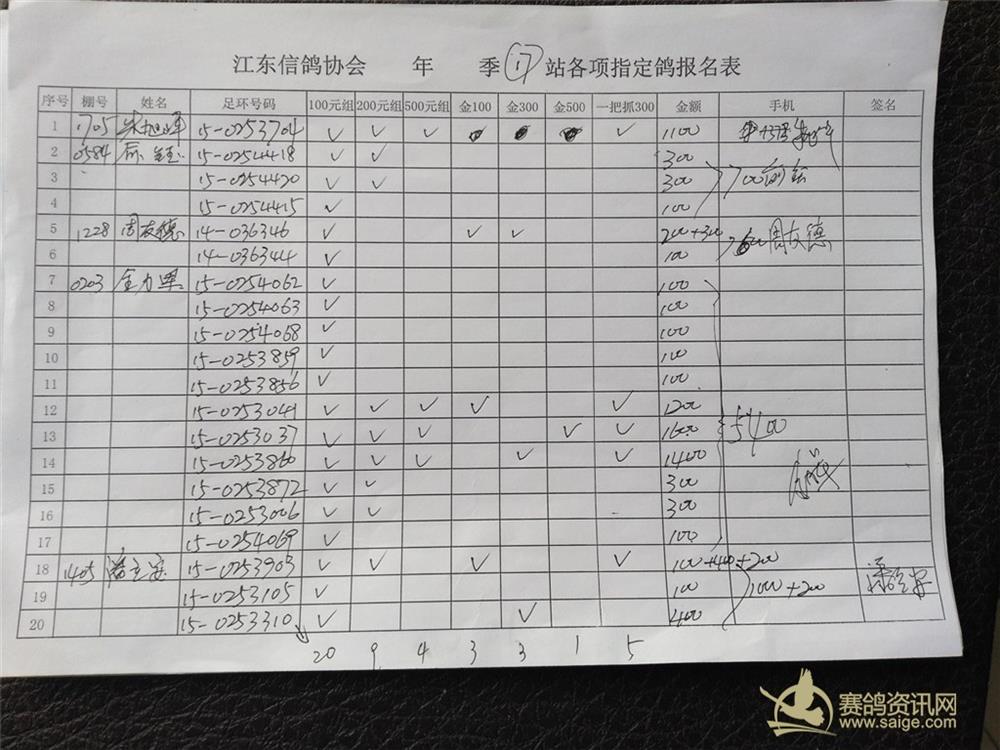 江东信鸽协会 年 季 17 站各项指定鸽报名表
序号 棚号 姓名 足环号码 100元组 200元组 500元组 金100 金300 金500 一把抓300 金额 手机 签名
1 1705 15-0253704 ✓ ✓ ✓ ✓ 1100
2 0584 15-0254418 ✓ ✓ 300
3 15-0254420 ✓ ✓ 300 700
4 15-0254415 ✓ 100
5 1228 周友德 14-036346 ✓ ✓ ✓ 200+300 周友德
6 14-036344 ✓ 100
7 0203 金力军 15-0254062 ✓ 100
8 15-0254063 ✓ 100
9 15-0254068 ✓ 100
10 15-0253859 ✓ 100
11 15-0253856 ✓ 100
12 15-0253041 ✓ ✓ ✓ ✓ ✓ 1200
13 15-0253037 ✓ ✓ ✓ ✓ ✓ 1600 5400
14 15-0253860 ✓ ✓ ✓ ✓ ✓ 1400
15 15-0253872 ✓ ✓ 300
16 15-0253006 ✓ ✓ 300
17 15-0254069 ✓ 100
18 1405 15-0253903 ✓ ✓ ✓ ✓ 100+400+200
19 15-0253105 ✓ 100 1000+200
20 15-0253310 ✓ ✓ 400
20 9 4 3 3 1 5
赛鸽资讯网
www.saige.com